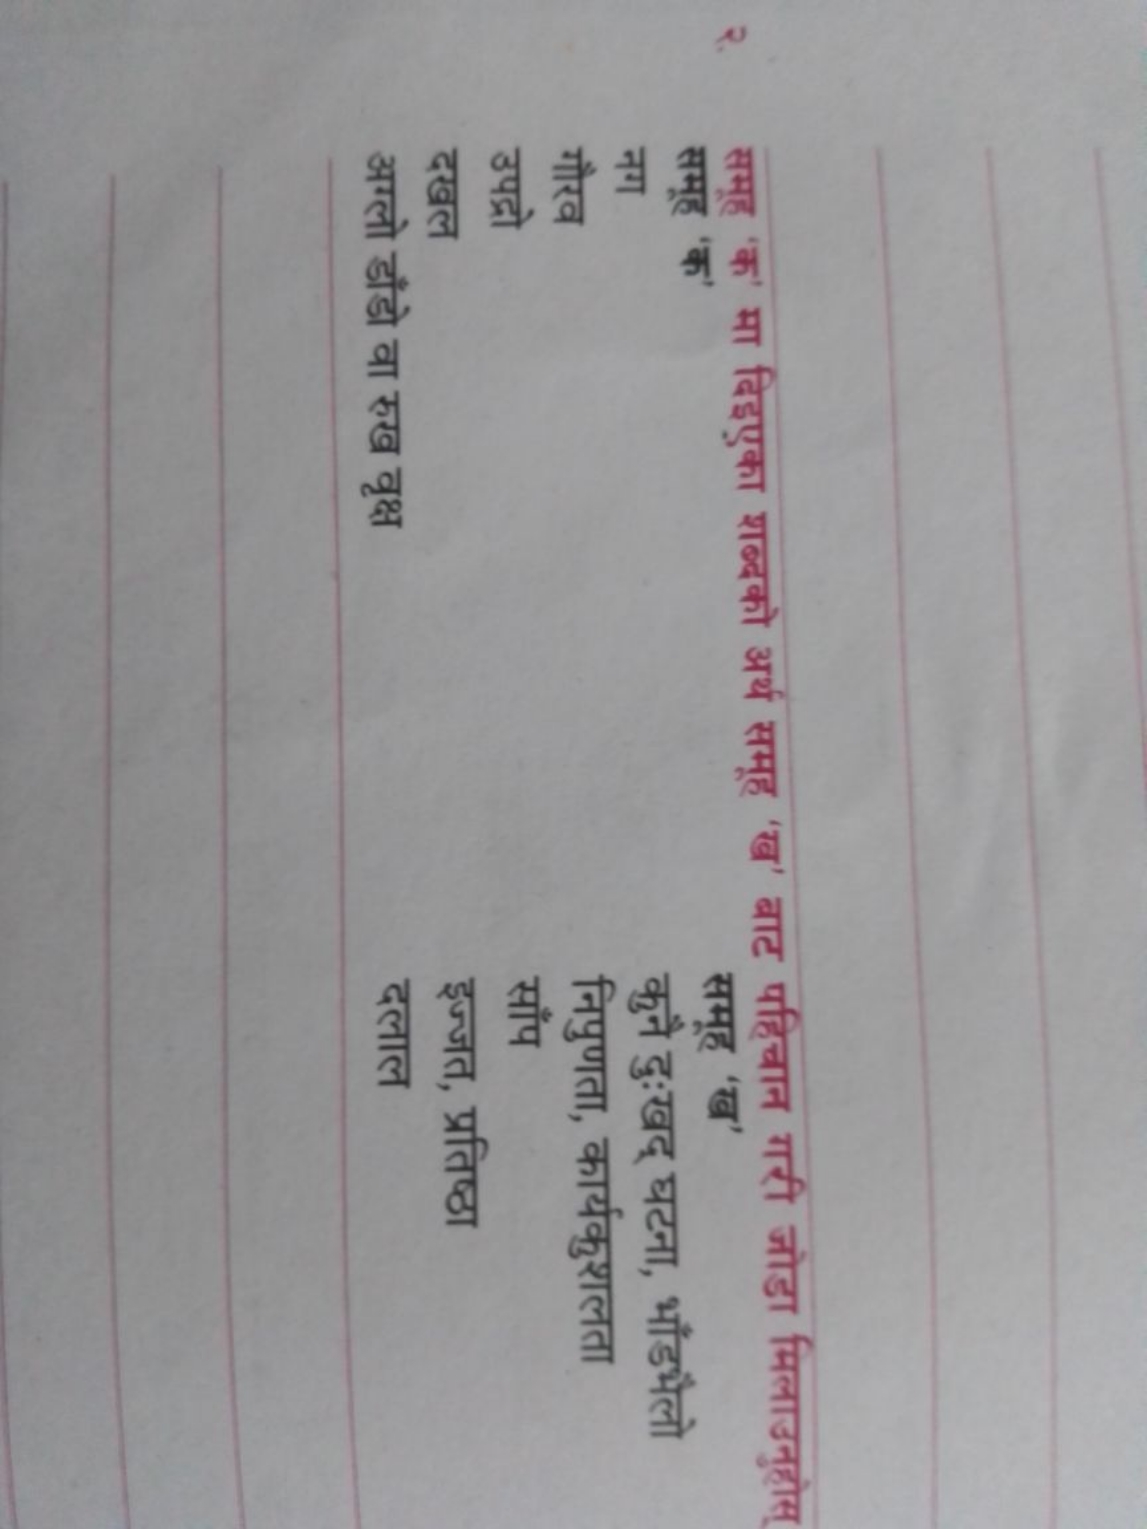 २. समूह 'क' मा दिइएका शब्दको अर्थ समूह 'ख' बाट पहिचान गरी जोडा मिलाउनुहोस्
समूह 'क' समूह 'ख'
नग कुनै दुःखद् घटना, भाँडभैलो
गौरव निपुणता, कार्यकुशलता
उपद्रो साँप
दखल इज्जत, प्रतिष्ठा
अग्लो डाँडो वा रुख वृक्ष दलाल